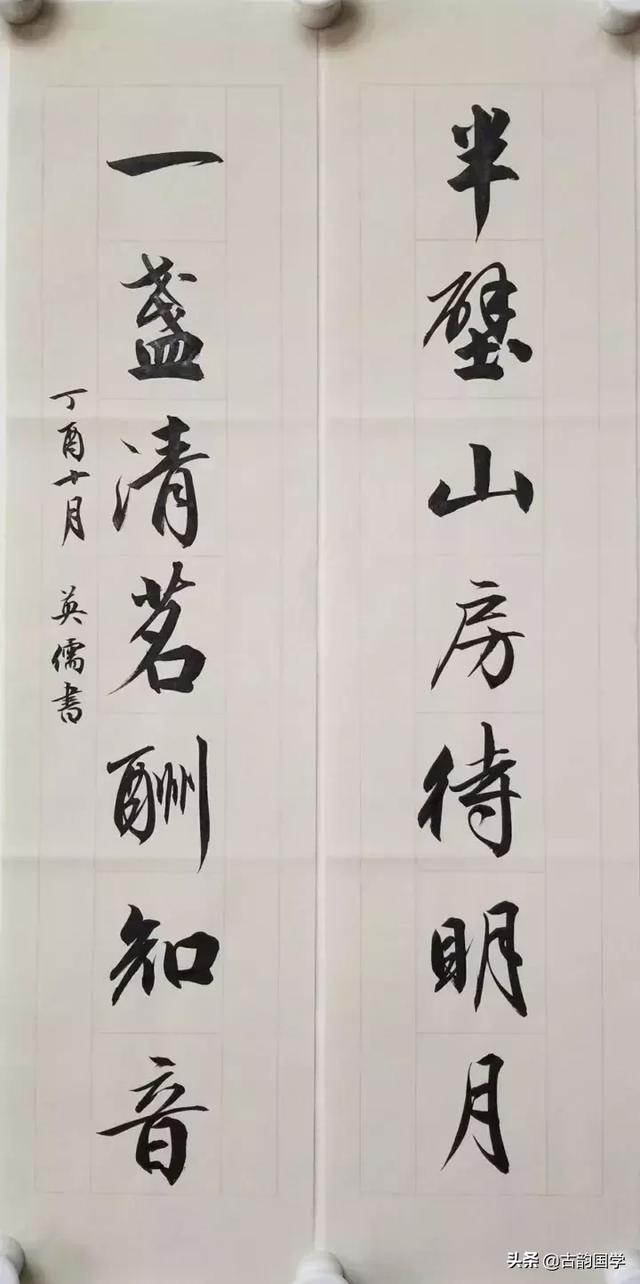 半壁山房待明月
一盏清茗酬知音
丁酉十月 英儒书
头条@古韵国学